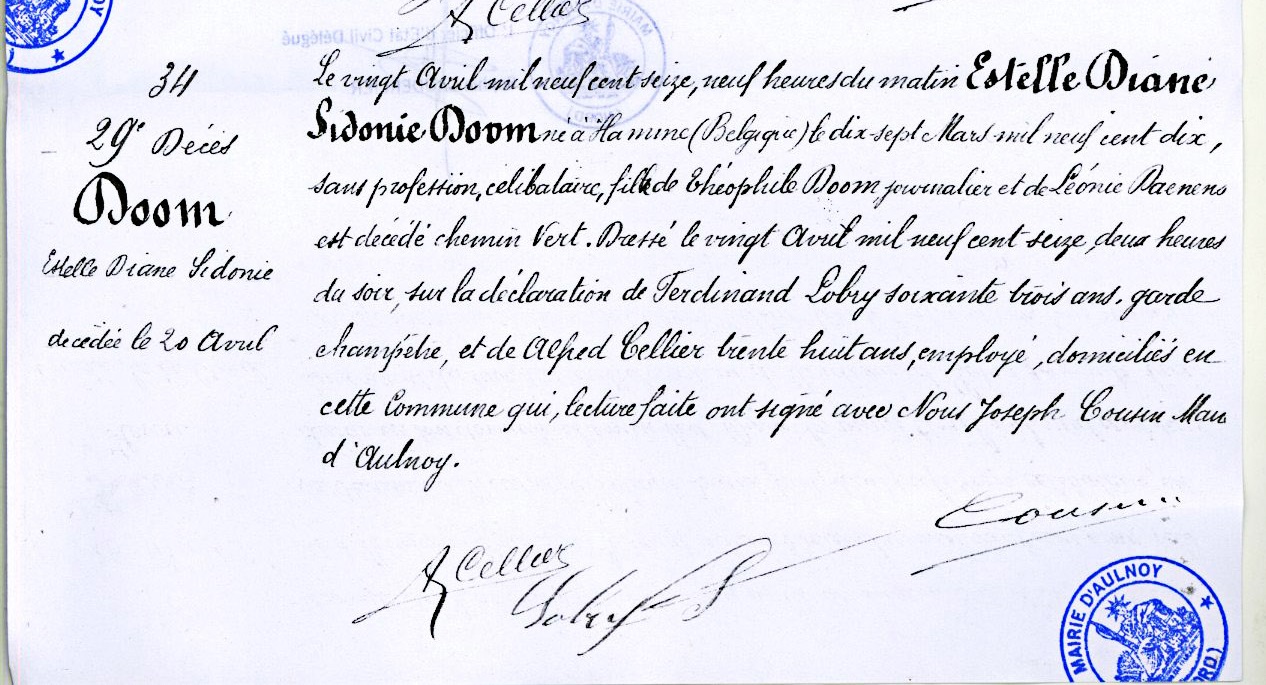 A Cellier
34
29e Décès
Doom
Estelle Diane Sidonie
décédée le 20 Avril
Le vingt Avril mil neuf cent seize, neuf heures du matin Estelle Diane
Sidonie Doom né à Hamme (Belgique) le dix-sept Mars mil neuf cent dix,
sans profession, célibataire, fille de Théophile Doom journalier et de Léonie Paenens
est décédé chemin Vert. Dressé le vingt Avril mil neuf cent seize, deux heures
du soir, sur la déclaration de Ferdinand Lobry soixante trois ans, garde
champêtre, et de Alfred Cellier trente huit ans, employé, domiciliés en
cette Commune qui, lecture faite ont signé avec Nous Joseph Cousin Maire
d'Aulnoy.
Cousin
A Cellier
Lobry F
MAIRIE D'AULNOY